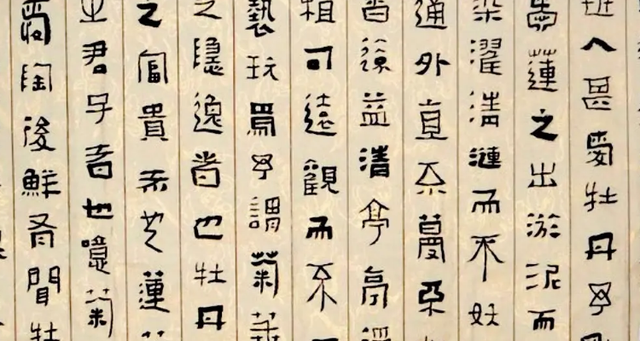 人甚愛牡丹予
愛蓮之出淤泥而
染濯清漣而不妖
通外直不蔓不
香遠益清亭亭淨
植可遠觀而不
褻玩焉予謂菊花
之隱逸者也牡丹
之富貴者也蓮
之君子者也噫菊
愛陶後鮮有聞牡